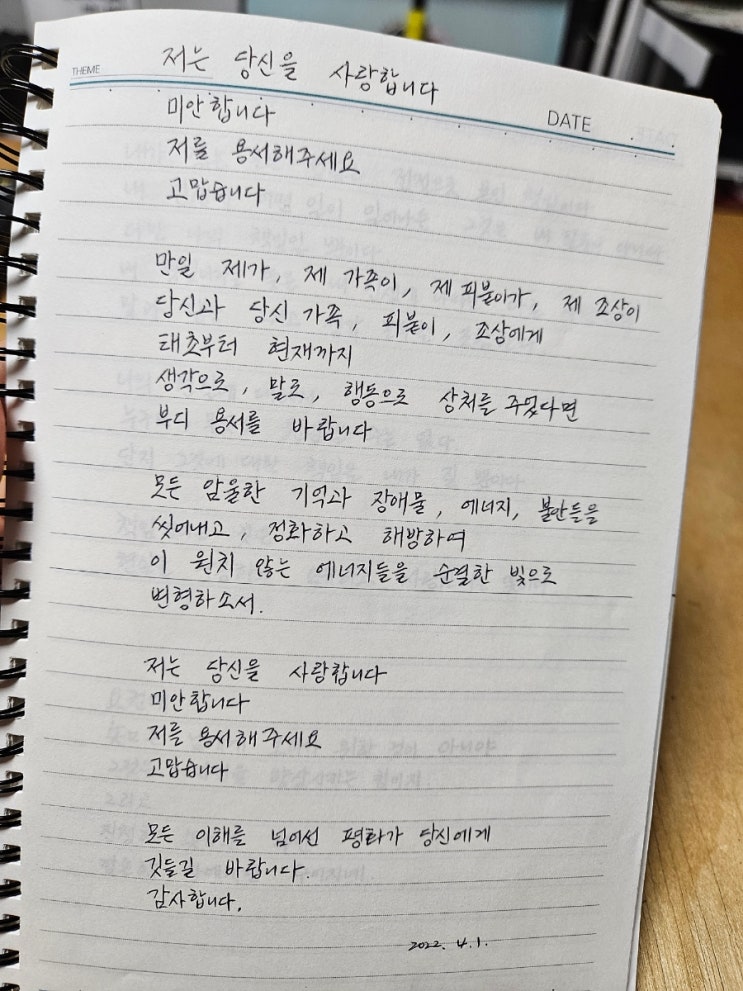 THEME
저는 당신을 사랑합니다
DATE
미안합니다
저를 용서해주세요
고맙습니다
만일 제가, 제 가족이, 제 피붙이가, 제 조상이
당신과 당신 가족, 피붙이, 조상에게
태초부터 현재까지
생각으로, 말로, 행동으로 상처를 주었다면
부디 용서를 바랍니다
모든 암울한 기억과 장애물, 에너지, 불만들을
씻어내고, 정화하고 해방하여
이 원치 않는 에너지들을 순결한 빛으로
변형하소서.
저는 당신을 사랑합니다
미안합니다
저를 용서해주세요
고맙습니다
모든 이해를 넘어선 평화가 당신에게
깃들길 바랍니다.
감사합니다.
2022. 4. 1.